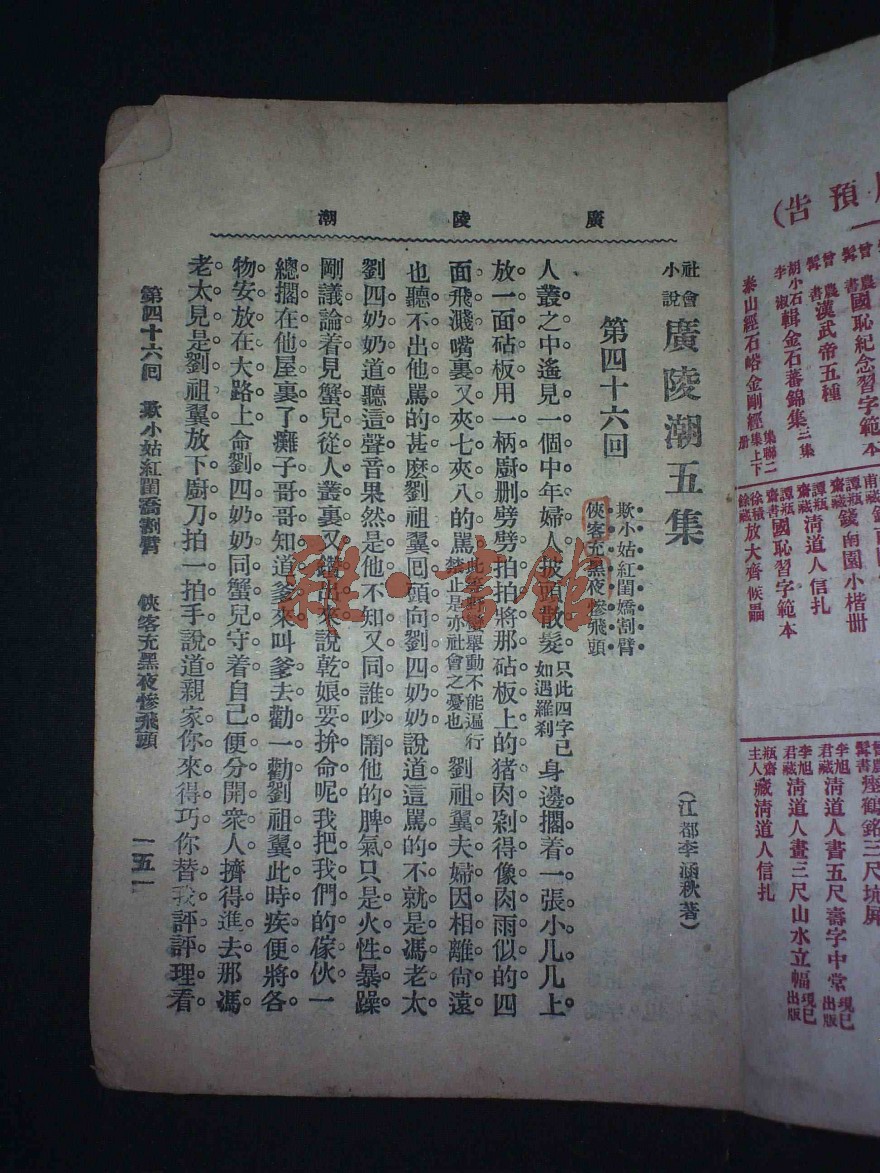 廣陵潮
社會小說 廣陵潮五集
(江都李涵秋著)
第四十六回
欺小姑紅閨嬌割臂
俠客充黑夜慘飛頭
人叢之中遙見一個中年婦人披頭散髮只此四字已如遇羅刹身邊擱着一張小几几上
放一面砧板用一柄廚刪劈劈拍拍將那砧板上的猪肉剁得像肉雨似的四
面飛濺嘴裏又夾七夾八的罵此等野蠻舉動不能逼行禁止是亦社會之憂也劉祖翼夫婦因相離尙遠
也聽不出他罵的甚麽劉祖翼回頭向劉四奶奶說道這罵的不就是馮老太
劉四奶奶道聽這聲音果然是他不知又同誰吵鬧他的脾氣只是火性暴躁
剛議論着見蟹兒從人叢裏又鑽出來說乾娘要拚命呢我把我們的傢伙一
總擱在他屋裏了癱子哥哥知道爹來叫爹去勸一勸劉祖翼此時疾便將各
物安放在大路上命劉四奶奶同蟹兒守着自己便分開衆人擠得進去那馮
老太見是劉祖翼放下廚刀拍一拍手說道親家你來得巧你替我評評理看
第四十六回 欺小姑紅閨嬌割臂 俠客充黑夜慘飛頭
一五一
雜·書館
預告)
曾農髯書國恥紀念習字範本
曾農髯書漢武帝五種
胡小石李淑輯金石蕃錦集三集
泰山經石峪金剛經集聯二集上下册
南園小楷册
譚瓶齋藏淸道人信扎
譚瓶齋書國恥習字範本
徐積餘藏放大齊候罍
瘞鶴銘三尺坑屏
李旭君藏淸道人書五尺壽字中堂現已出版
李旭君藏淸道人畫三尺山水立幅現已出版
瓶齋主人藏淸道人信扎